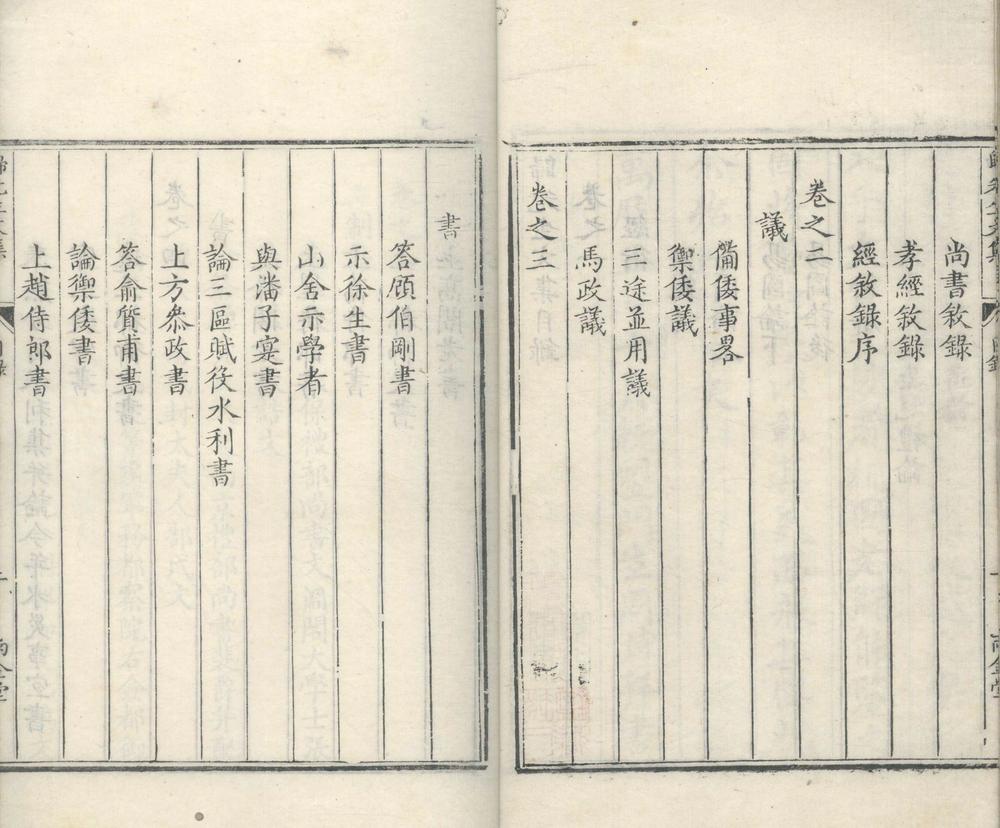 尚書敘錄
孝經敘錄
經敘錄序
卷之二
議
備倭事畧
禦倭議
三途並用議
馬政議
卷之三
書
答顧伯剛書
示徐生書
山舍示學者
與潘子寔書
論三區賦役水利書
上方叅政書
答俞質甫書
論禦倭書
上趙侍郎書